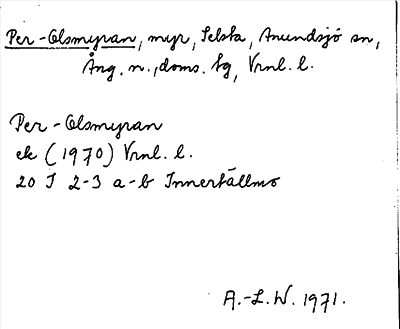 Per-Olsmyran, myr, Selsta, Anundsjö sn,
Ång. n., doms. tg, Vrnl. l.
Per-Olsmyran
ek (1970) Vrnl. l.
20 J 2-3 a-b Innertällmo
A.-L.W. 1971.